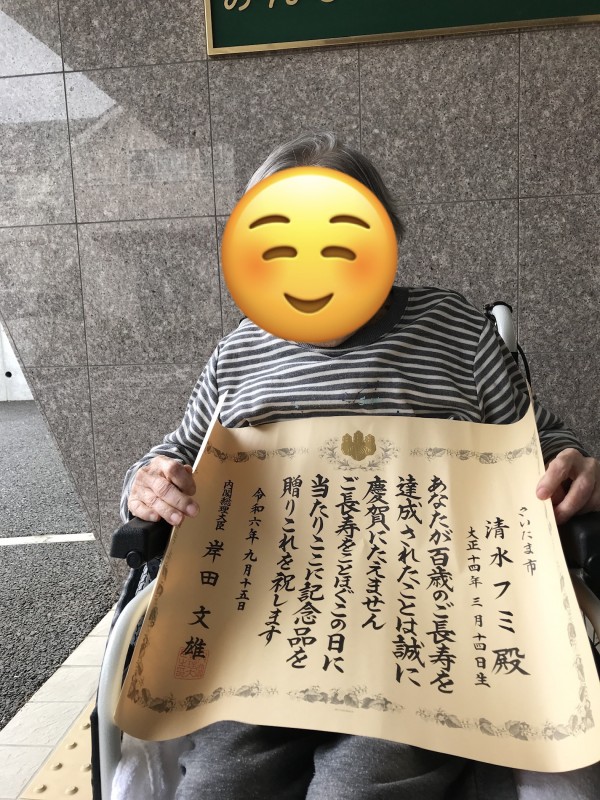 さいたま市
清水フミ殿
大正十四年三月十四日生
あなたが百歳のご長寿を
達成されたことは誠に
慶賀にたえません
ご長寿をことほぐこの日に
当たりここに記念品を
贈りこれを祝します
令和六年九月十五日
内閣総理大臣 岸田文雄